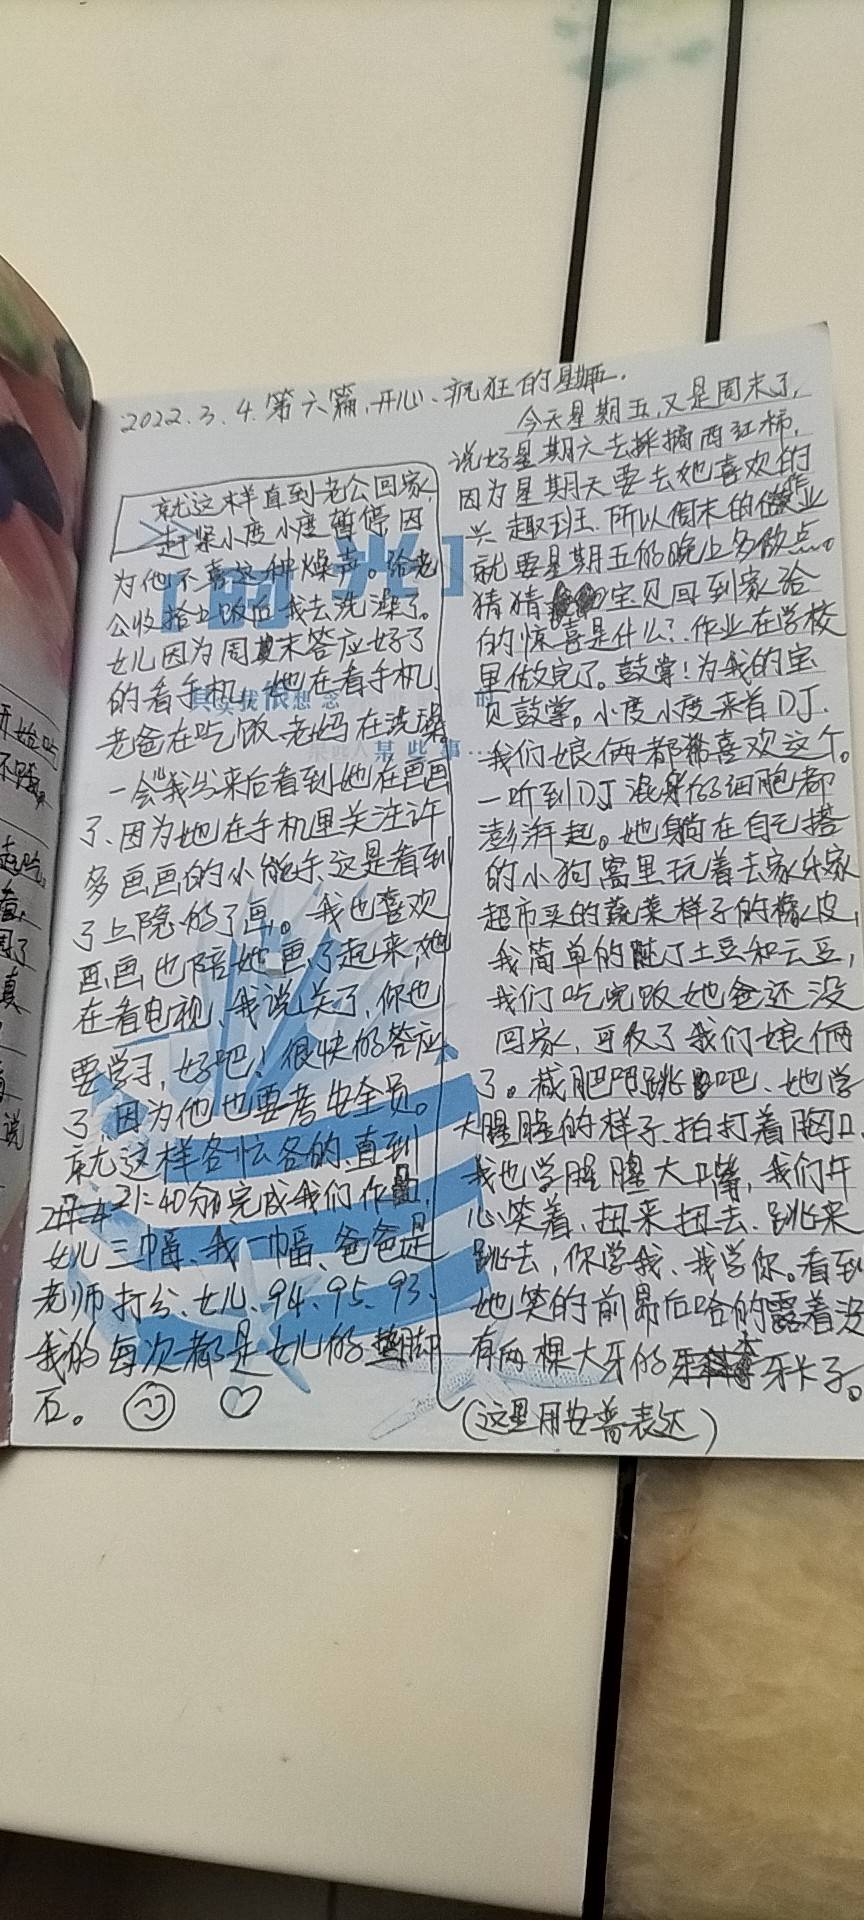 2022.3.4.第六篇.开心、疯狂的星期五.
今天星期五,又是周末了,
说好星期六去採摘西红柿,
因为星期天要去她喜欢的
兴趣班.所以周末的作业
就要星期五的晚上多做点。
猜猜宝贝回到家给
的惊喜是什么?.作业在学校
里做完了。鼓掌!为我的宝
贝鼓掌。小度小度来首DJ.
我们娘俩都稀喜欢这个。
一听到DJ混身的细胞都
澎湃起。她躺在自己搭
的小狗窝里玩着去家乐家
超市买的蔬菜样子的橡皮,
我简单的炖了土豆和云豆,
我们吃完饭她爸还没
回家,可乐了我们娘俩
了。减肥吧跳吧、她学
大腥腥的样子.拍打着胸口.
我也学腥腥大口嘴,我们开
心笑着、扭来扭去.跳来
跳去,你学我、我学你。看到
她笑的前昂后哈的露着没
有两棵大牙的牙卡子。
(这里用安普表达)
就这样直到老公回家,
赶紧小度小度暂停因
为他不喜这种燥声。给老
公收拾上饭后我去洗澡了。
女儿因为周末答应好了
的看手机、她在看手机、
老爸在吃饭、老妈在洗澡
一会"我出来后看到她在画画
了、因为她在手机里关注许
多画画的小能手.这是看到
了上隐的了画。我也喜欢
画画也陪她画了起来,她
在看电视、我说关了,你也
要学习,好吧!很快的答应
了,因为他也要考安全员。
就这样各忙各的、直到
21:40分完成我们作
女儿三幅、我一幅、爸爸是
老师打分、女儿、94、95、93、
我的每次都是女儿的垫脚
石。
[阳光]
其实我很想念
某些人某些事…